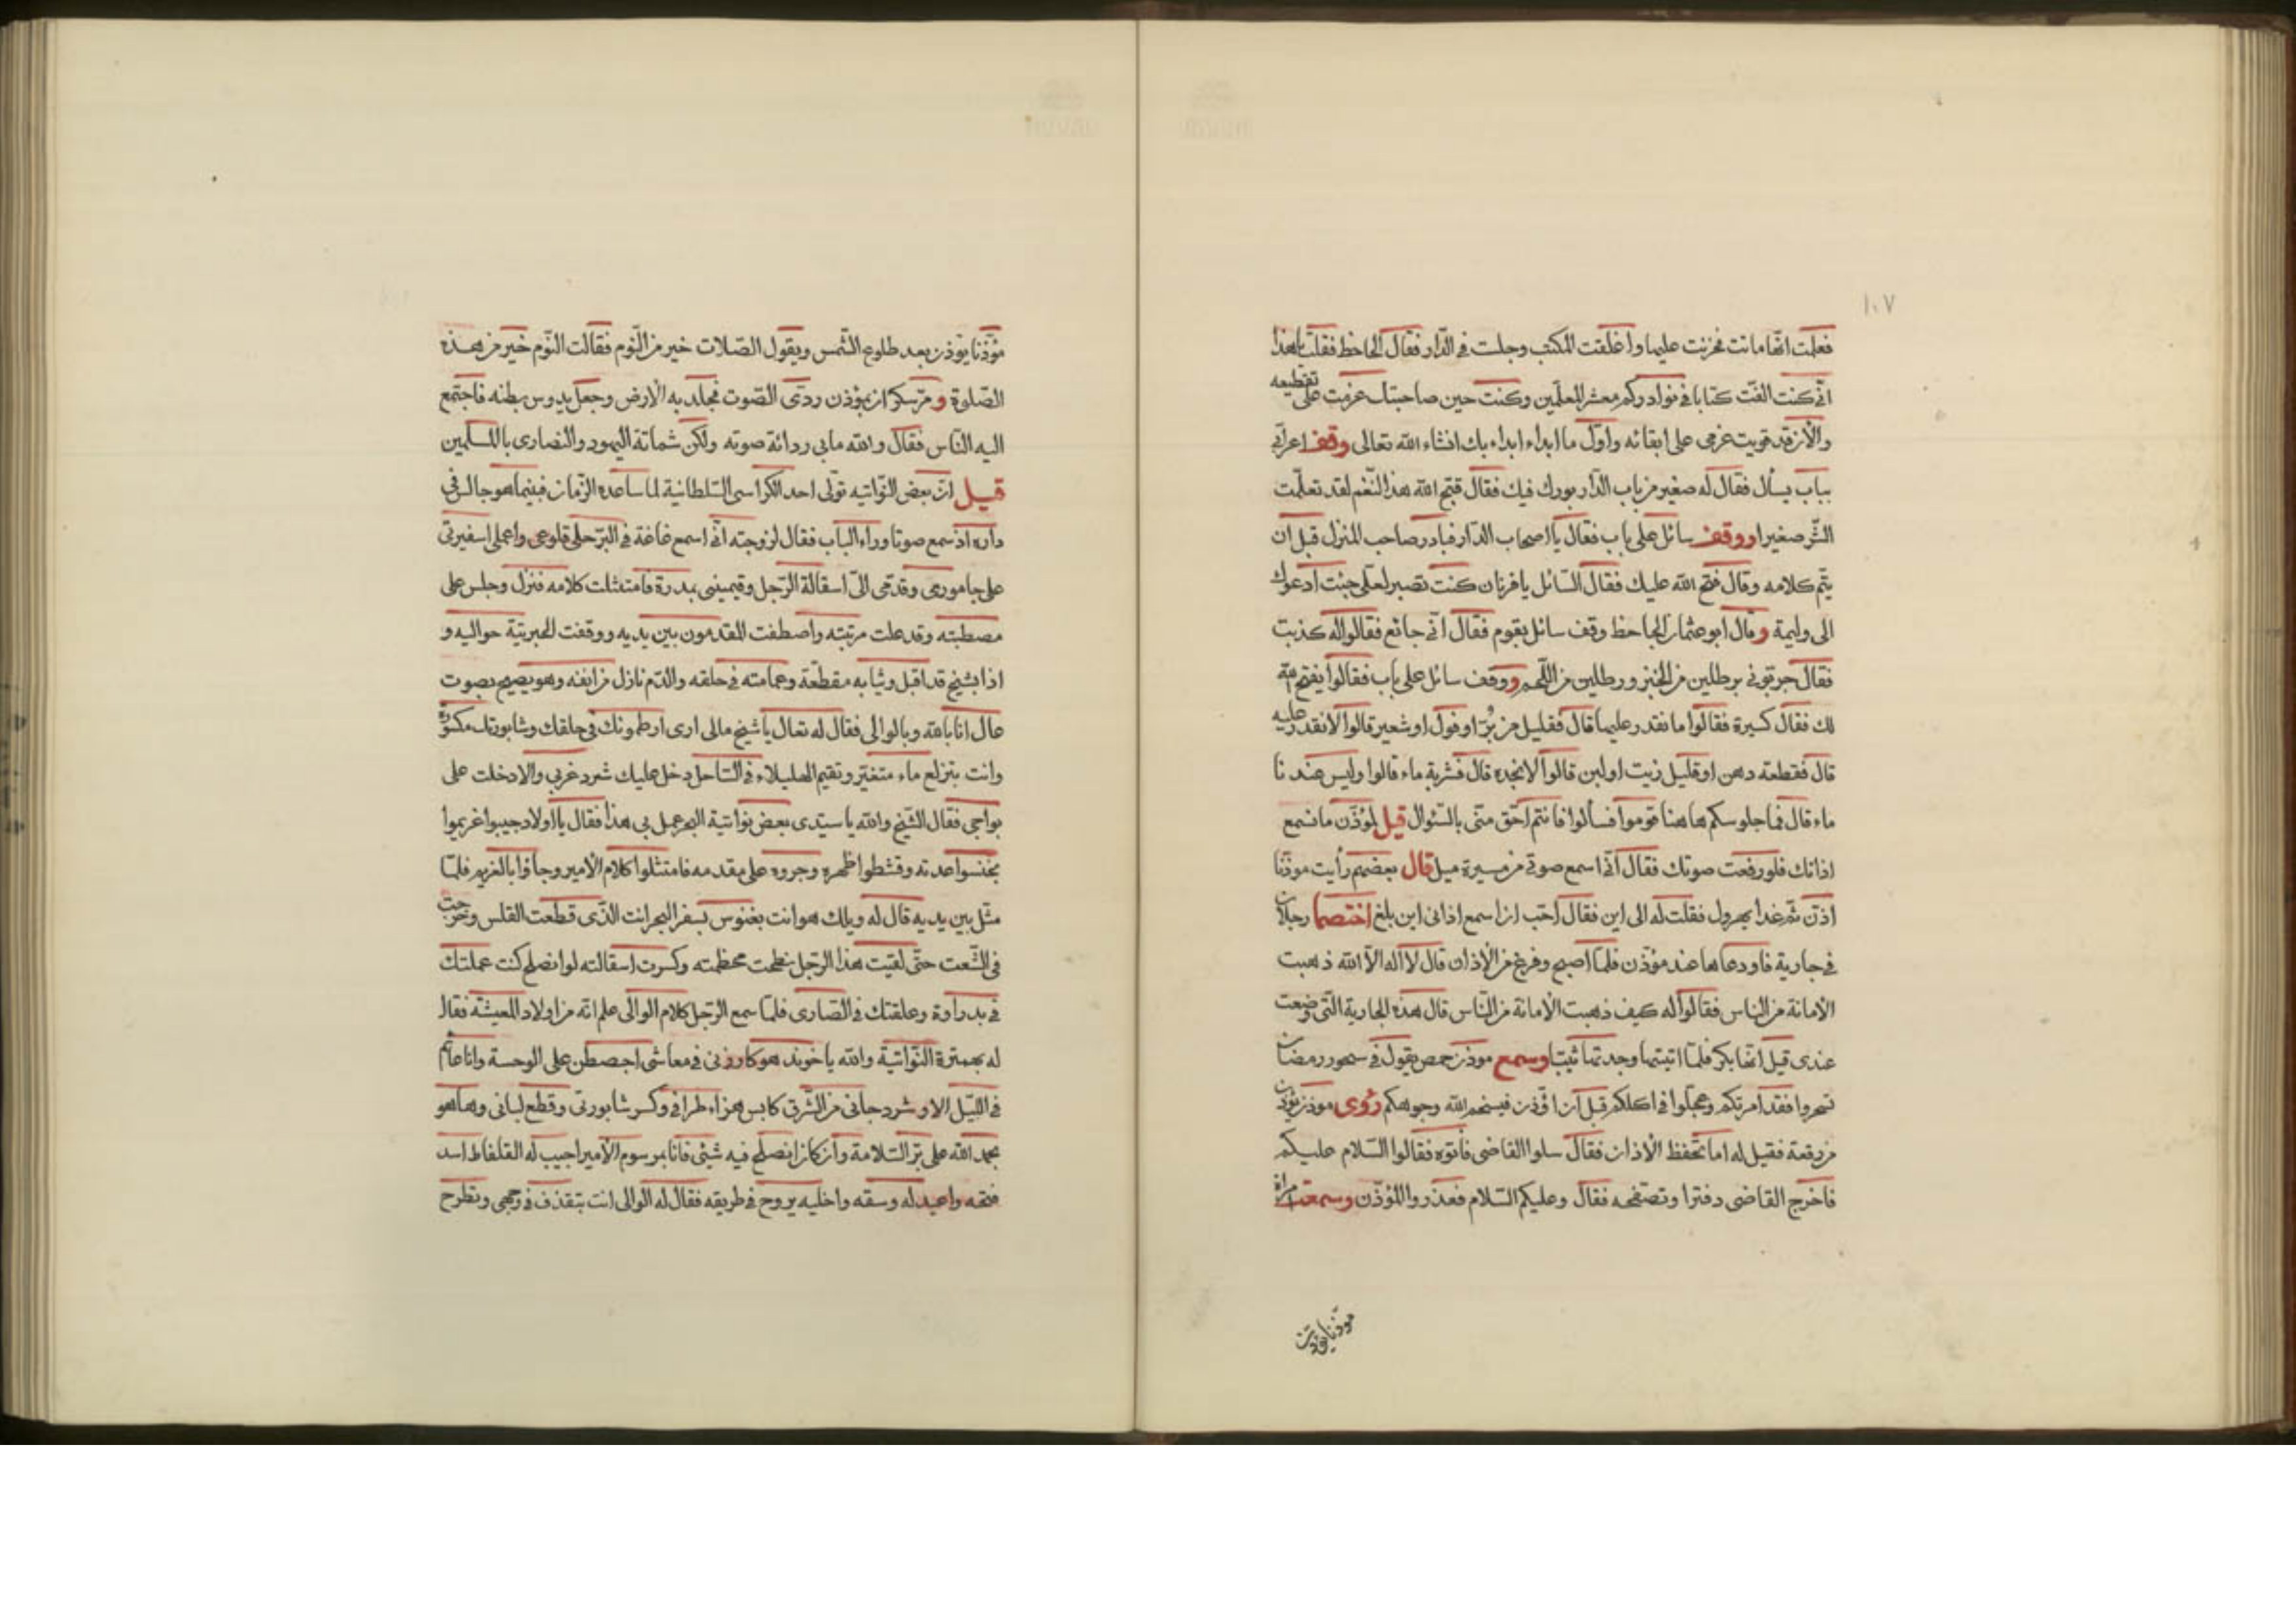 ١٠٧
فعلمت انها ماتت فحزنت عليها واغلقت المكتب وجلست فى الدّار فقال الجاحظ فقلت يا هذا
انّى كنت الفّت كتابا فى نوادركم معشر المعلّمين وكنت حين صاحبتك عزمت على تقطيعه
والان قد قويت عزمى على ابقائه واوّل ما ابداء ابداء بك انشاء الله تعالى وقف اعرابى
بباب يسأل فقال له صغير من باب الدّار بورك فيك فقال قبّح الله هذا الفم لقد تعلّمت
الشّر صغيرا ووقف سائل على باب فقال يا اصحاب الدّار فبادر صاحب المنزل قبل ان
يتمّ كلامه وقال فتح الله عليك فقال السّائل يا قرنان كنت تصبر لعلّى جئت ادعوك
الى وليمة وقال ابو عثمان الجاحظ وقف سائل بقوم فقال انّى جائع فقالوا له كذبت
فقال جرّبونى برطلين من الخبز ورطلين من اللّحم ووقف سائل على باب فقالوا يفتح الله
لك فقال كسيرة فقالوا ما نقدر عليها قال فقليل من بُرّ او فول او شعير قالوا لا نقدر عليه
قال فقطعة دهن او قليل زيت او لبن قالوا لا نجده قال فشربة ماء قالوا وليس عندنا
ماء قال فما جلوسكم هاهنا قوموا فسألوا فانتم احقّ منّى بالسّئوال قيل لمؤذّن ما نسمع
اذانك فلو رفعت صوتك فقال انّى اسمع صوتى من مسيرة ميل قال بعضهم رأيت موذّنا
اذّن ثمّ غدا يهرول فقلت له الى اين فقال احب ان اسمع اذانى اين بلغ اختصما رجلان
فى جارية فاودعاها عند مؤذّن فلمّا اصبح وفرغ من الاذان قال لا اله الاّ الله ذهبت
الامانة من الناس فقالوا له كيف ذهبت الامانة من النّاس قال هذه الجارية الّتى وضعت
عندى قيل انّها بكر فلمّا اتيتها وجدتها ثيّبا وسمع موذن حمص يقول فى سحور رمضان
تسحروا فقد امرتكم وعجّلوا فى اكلكم قبل ان اؤذن فيسخم الله وجوهكم رُوى موذن يؤذن
من رقعة فقيل له اما تحفظ الاذان فقال سلوا القاضى فأتوه فقالوا السّلام عليكم
فاخرج القاضى دفترا وتصفّحه فقال وعليكم السّلام فعذروا المؤذّن وسمعت امراة
موذّنا يؤذن
مؤذّنا يؤذن بعد طلوع الشّمس ويقول الصّلات خير من النّوم فقالت النّوم خير من هذه
الصّلوة ومرّ سكران بمؤذن ردّى الصّوت فجلد به الارض وجعل يدوس بطنه فاجتمع
اليه النّاس فقال والله مابى ردائة صوته ولكن شماتة اليهود والنصارى بالمسلمين
قيل انّ بعض النّواتيه تولّى احد الكراسى السّلطانية لما ساعده الزّمان فبينما هو جالس فى
داره اذ سمع صوتا وراء الباب فقال لزوجته انّى اسمع غاغة فى البرّ حلى قلوعى واعملى اسفيرتى
على جامورى وقدّمى الىّ اسقالة الرّجل وقيمينى بمدرة فامتثلت كلامه فنزل وجلس على
مصطبته وقد علت مرتبته واصطفت المقدمون بين يديه ووقفت الجبرتية حواليه و
اذا بشيخ قد اقبل وثيابه مقطّعة وعمامته فى حلقه والدّم نازل من انفه وهو يصيح بصوت
عال انا بالله وبالوالى فقال له تعال يا شيخ مالى ارى ارطمونك فى حلقك وشابورتك مكسورة
وانت بتزلع ماء متغيّر وتقيم الهليلاء فى السّاحل دخل عليك شرد غربى والا دخلت على
بواجى فقال الشّيخ والله يا سيّدى بعض نواتية البحر عمل بى هذا فقال يا اولاد جيبوا غريموا
بخنسوا عدته وقشطوا ظهره وجروه على مقدمه فامتثلوا كلام الامير وجاؤا بالغريم فلمّا
مثّل بين يديه قال له ويلك هو انت بغنوس بسفر البحر انت الّذى قطعت القلس وخرجت
فى الشّعت حتّى لقيت هذا الرّجل نطحت محطمته وكسرت اسقالته لو انصلح كنت عملتك
فى بدراوة وعلقتك فى الصّارى فلمّا سمع الرّجل كلام الوالى علم انّه من اولاد المعيشة فقال
له بهمترة النّواتيّة والله يا خوند هو كارزنى فى معاشى اجصطن على الوحسة وانا عائم
فى اللّيل الا وشرد جانى من الشّرق كابس هز اء طرافى وكسر شابورتى وقطع لبانى وها هو
بحمد الله على برّ السّلامة وان كان انصلح فيه شئى فانا بمرسوم الامير اجيب له القلفاط اسد
فتحه واعيد له وسقه واخليه يروح فى طريقه فقال له الوالى انت بتقذف فى وجهى وتطرح